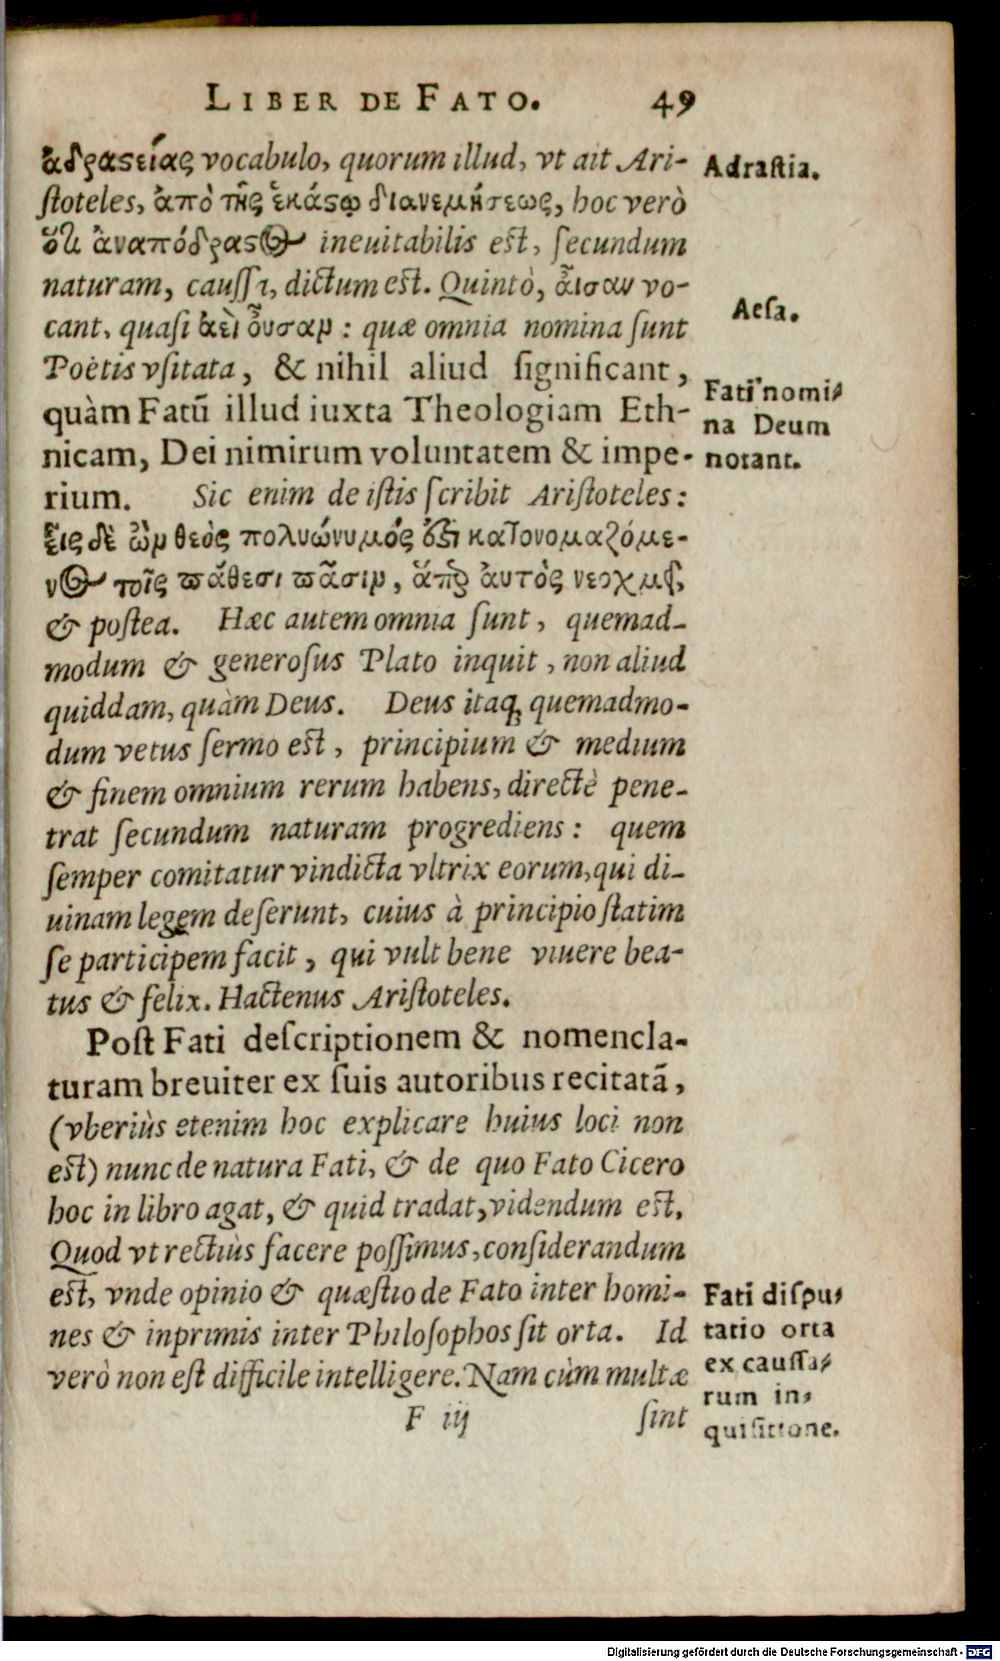 LIBER DE FATO. 49
ἀδραστείας vocabulo, quorum illud, vt ait Ari-
ſtoteles, ἀπὸ τῆς ἑκάστῳ διανεμήσεως, hoc verò
ὅτι ἀναπόδραστος ineuitabilis eſt, ſecundum
naturam, cauſſa, dictum eſt. Quintò, αἶσαν vo-
cant, quaſi ἀεὶ οὖσαν: quæ omnia nomina ſunt
Poëtis vſitata, & nihil aliud ſignificant,
quàm Fatū illud iuxta Theologiam Eth-
nicam, Dei nimirum voluntatem & impe-
rium. Sic enim de iſtis ſcribit Ariſtoteles:
εἷς δὲ ὢν θεὸς πολυώνυμός ἐστι κατονομαζόμε-
νος τοῖς πάθεσι πᾶσιν, ἅπερ αὐτὸς νεοχμεῖ,
& poſtea. Hæc autem omnia ſunt, quemad-
modum & generoſus Plato inquit, non aliud
quiddam, quàm Deus. Deus itaq; quemadmo-
dum vetus ſermo eſt, principium & medium
& finem omnium rerum habens, directè pene-
trat ſecundum naturam progrediens: quem
ſemper comitatur vindicta vltrix eorum, qui di-
uinam legem deſerunt, cuius à principio ſtatim
ſe participem facit, qui vult bene viuere bea-
tus & felix. Hactenus Ariſtoteles.
Poſt Fati deſcriptionem & nomencla-
turam breuiter ex ſuis autoribus recitatā,
(vberiùs etenim hoc explicare huius loci non
eſt) nunc de natura Fati, & de quo Fato Cicero
hoc in libro agat, & quid tradat, videndum eſt.
Quod vt rectiùs facere poſſimus, conſiderandum
eſt, vnde opinio & quæſtio de Fato inter homi-
nes & inprimis inter Philoſophos ſit orta. Id
verò non eſt difficile intelligere. Nam cùm multæ
F iij ſint
Adraſtia.
Aeſa.
Fati nomi-
na Deum
notant.
Fati diſpu-
tatio orta
ex cauſſa-
rum in-
quiſitione.
Digitalisierung gefördert durch die Deutsche Forschungsgemeinschaft - DFG